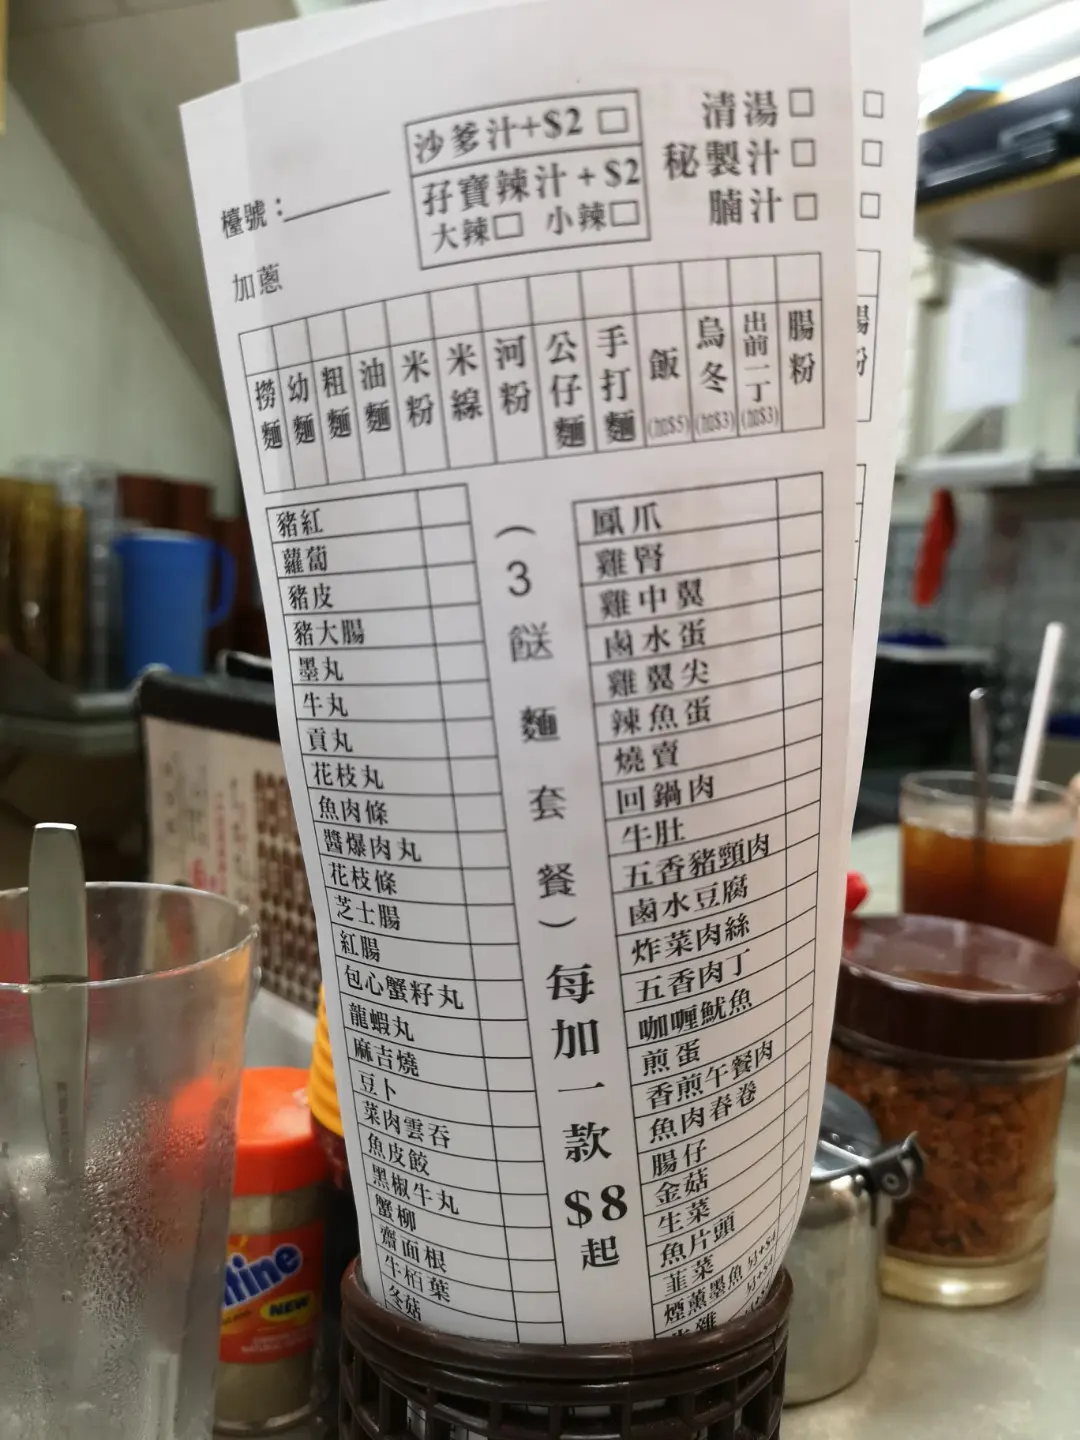 沙爹汁+$2 □
孖寶辣汁+$2
大辣□ 小辣□
清湯□
秘製汁□
腩汁□
檯號：
加蔥
撈麵
幼麵
粗麵
油麵
米粉
米線
河粉
公仔麵
手打麵
飯(加$5)
烏冬(加$3)
出前一丁(加$3)
腸粉
豬紅
蘿蔔
豬皮
豬大腸
墨丸
牛丸
貢丸
花枝丸
魚肉條
醬爆肉丸
花枝條
芝士腸
紅腸
包心蟹籽丸
龍蝦丸
麻吉燒
豆卜
菜肉雲吞
魚皮餃
黑椒牛丸
蟹柳
齋面根
牛柏葉
冬菇
（3餸麵套餐）每加一款$8起
鳳爪
雞腎
雞中翼
鹵水蛋
雞翼尖
辣魚蛋
燒賣
回鍋肉
牛肚
五香豬頸肉
鹵水豆腐
炸菜肉絲
五香肉丁
咖喱魷魚
煎蛋
香煎午餐肉
魚肉春卷
腸仔
金菇
生菜
魚片頭
韮菜
煙薰墨魚
腸粉
ntine
NEW